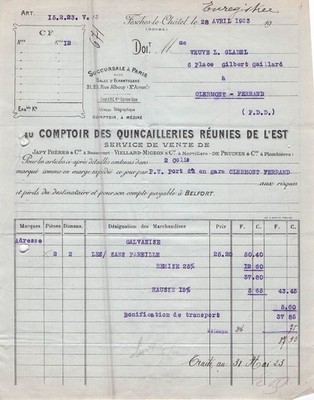 Enregistrée
ART. 15.2.23. V.
Fesches-le-Châtel, le 28 AVRIL 1923 19
(DOUBS)
CF
N° 12
Doit Mme
VEUVE L. GLADEL
6 Place Gilbert Gaillard
à
CLERMONT - FERRAND
(P.D.D)
SUCCURSALE A PARIS
SALLE D'ÉCHANTILLONS
31, 33, Rue Albouy (Xe Arrond)
COMPTOIR, A MÉZIRÉ
AU COMPTOIR DES QUINCAILLERIES RÉUNIES DE L'EST
SERVICE DE VENTE DE
JAPY FRÈRES & Cie à Beaucourt - VIELLARD-MIGEON & Cie à Morvillars - DE PRUINES & Cie à Plombières
Pour les articles ci-après détaillés contenus dans 2 Colis
marqué comme en marge expédié ce jour par P.V. port dû en gare CLERMONT FERRAND
aux risques
et périls du destinataire et pour son compte payable à BELFORT.
Marques Pièces Dizaines Désignation des Marchandises Prix F. C. F. C.
Adresse GALVANISE
2 2 LES/ SANS PAREILLE 25.20 50.40
REMISE 25% 12 60
37.80
HAUSSE 15% 5 65 43.45
5.60
37 85
Bonification de transport
Traite au 31 Mai 23